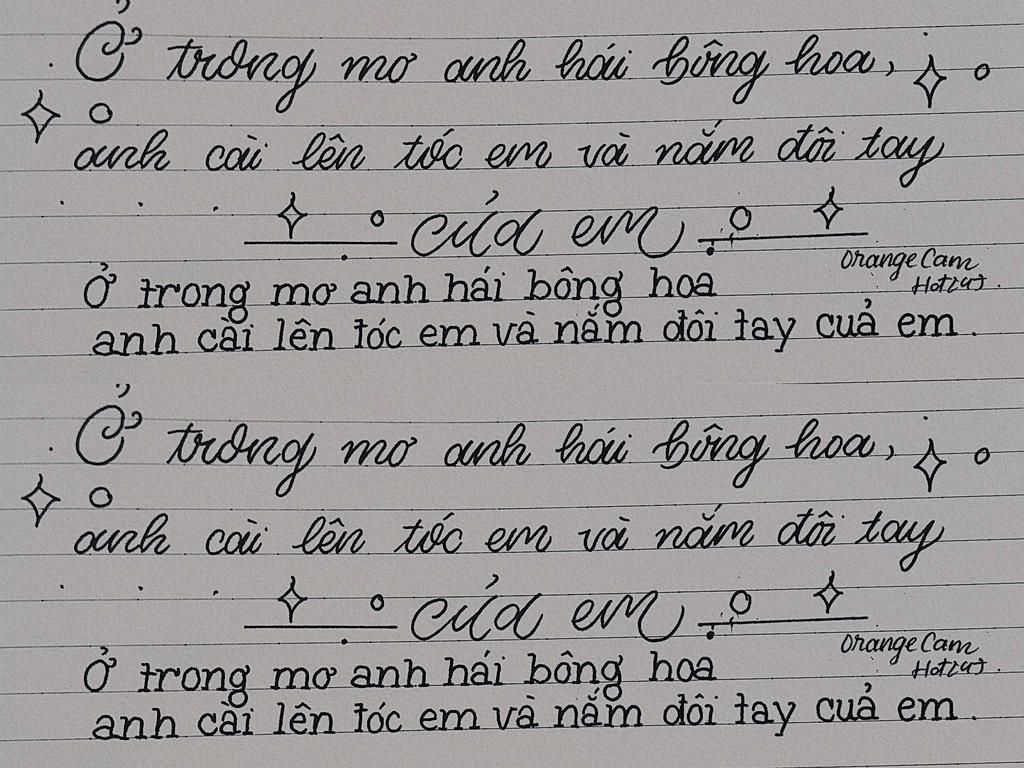 Ở trong mơ anh hái bông hoa,
anh cài lên tóc em và nắm đôi tay
của em
OrangeCam
Ở trong mơ anh hái bông hoa
anh cài lên tóc em và nắm đôi tay cuả em.
Ở trong mơ anh hái bông hoa,
anh cài lên tóc em và nắm đôi tay
của em
OrangeCam
Ở trong mơ anh hái bông hoa
anh cài lên tóc em và nắm đôi tay cuả em.